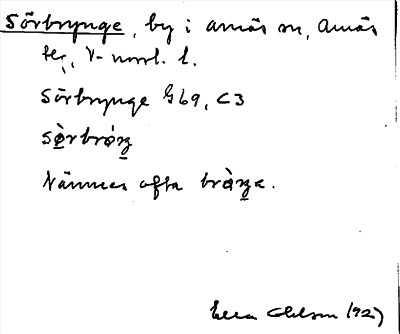 Sörbrynge, by i Arnäs sn, Arnäs
tg, V-norrl. l.
Sörbrynge Gb9, C3
sø̀rbrø̀ŋ
Nämnes ofta brø̀ŋe.
Ella Ohlson 1927